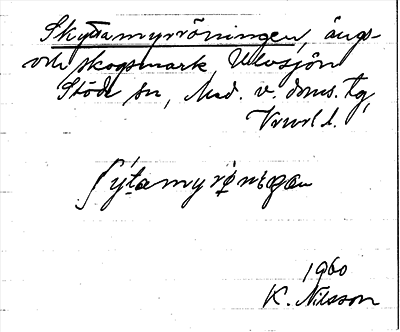 Skyttamyrröningen, ängs-
och skogsmark Ulvsjön
Stöde sn, Med. v. doms. tg,
Vnrl d.
ʃýtamyrø̀niŋən
1960
K. Nilsson